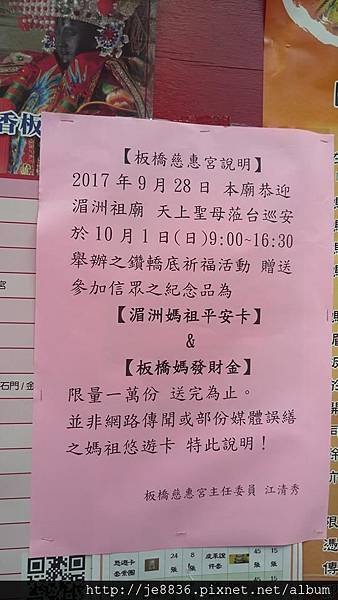 香板
【板橋慈惠宮說明】
2017年9月28日 本廟恭迎
湄洲祖廟 天上聖母蒞台巡安
於10月1日(日)9:00~16:30
舉辦之鑽轎底祈福活動 贈送
參加信眾之紀念品為
【湄洲媽祖平安卡】
&
【板橋媽發財金】
限量一萬份 送完為止。
並非網路傳聞或部份媒體誤繕
之媽祖悠遊卡 特此說明！
板橋慈惠宮主任委員 江清秀
石門/金
悠遊卡
24
8
45
15
張
張
張
http://je8836.pixnet.net/album